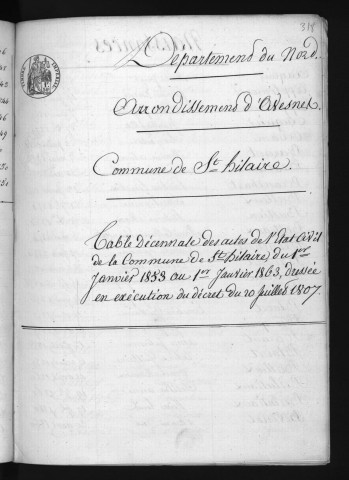 318
Département du Nord.
Arrondissement d'Avesnes.
Commune de St. hilaire.
Table Décennale des actes de l'Etat Civil
de la Commune de St. hilaire, du 1er
Janvier 1853 au 1er Janvier 1863, dressée
en exécution du décret du 20 Juillet 1807.